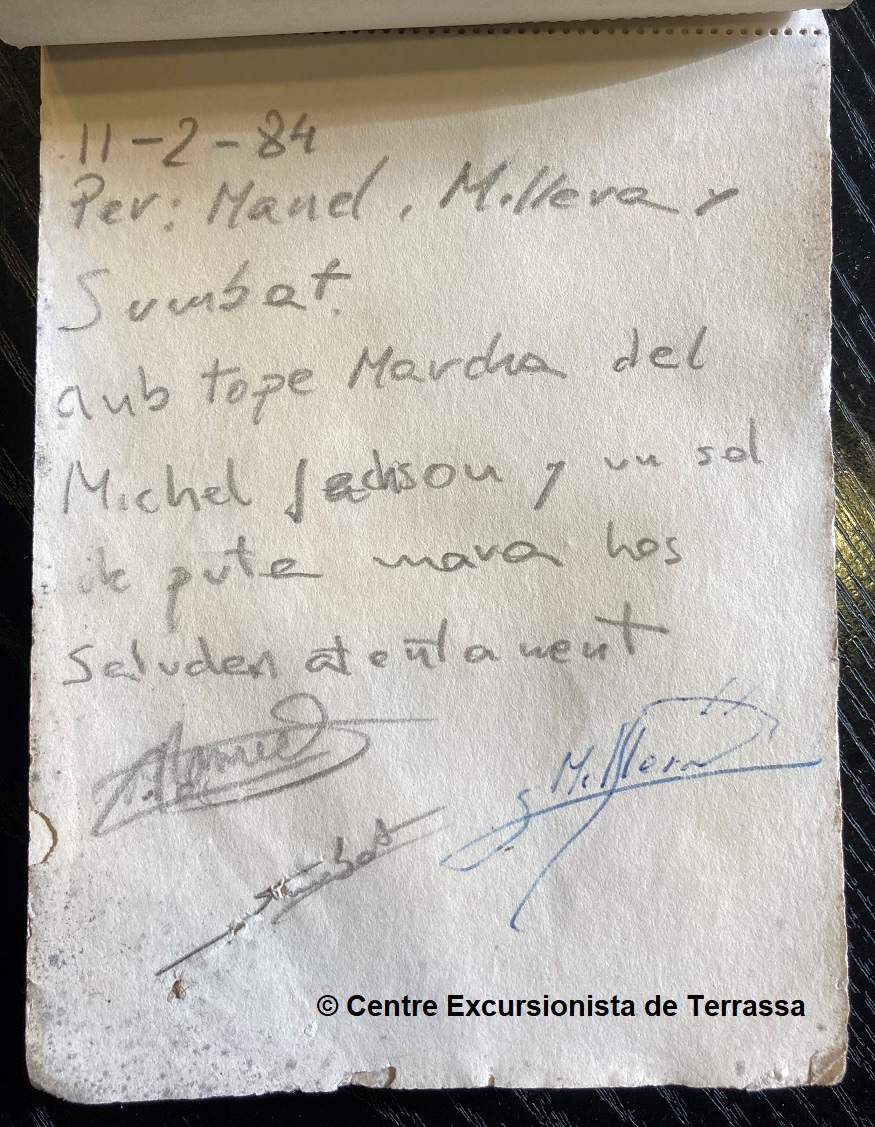 11-2-84
Per: Manel, Millera y
Sumbat.
amb tope Marcha del
Michel Jackson y un sol
de puta mara hos
Saluden atentament
Manel
Millera
Sumbat
© Centre Excursionista de Terrassa